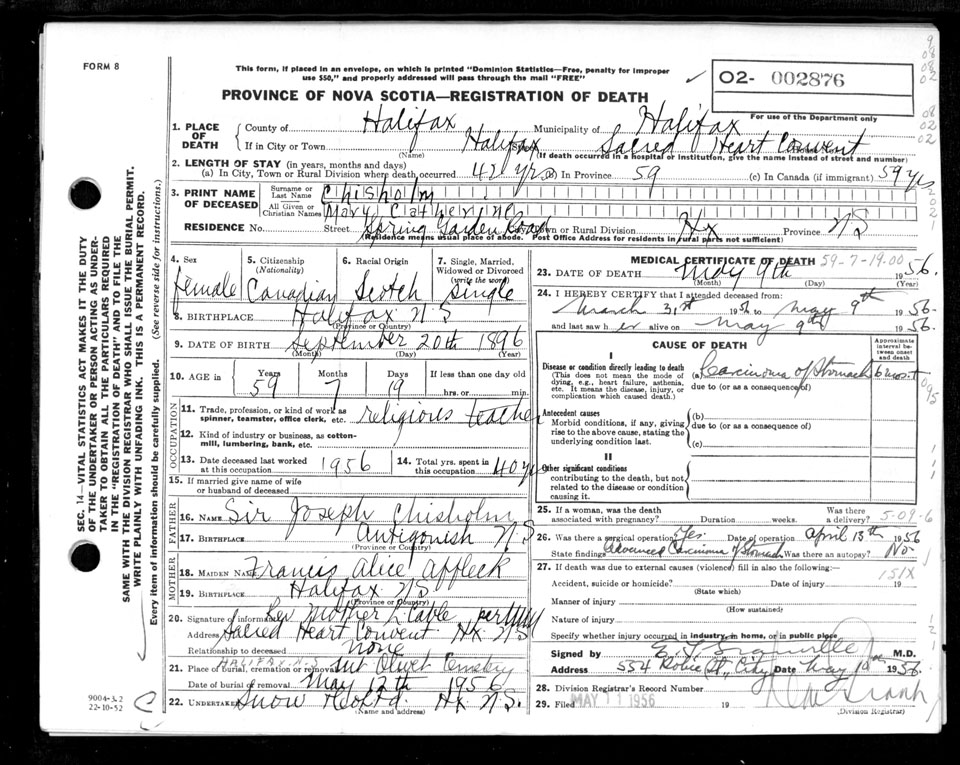 FORM 8
This form, if placed in an envelope, on which is printed "Dominion Statistics—Free, penalty for improper
use $50," and properly addressed will pass through the mail "FREE"
02- 002876
For use of the Department only
PROVINCE OF NOVA SCOTIA—REGISTRATION OF DEATH
1. PLACE OF DEATH
County of Halifax Municipality of Halifax
If in City or Town Halifax Sacred Heart Convent
(Name) (If death occurred in a hospital or institution, give the name instead of street and number)
2. LENGTH OF STAY (in years, months and days)
(a) In City, Town or Rural Division where death occurred 42 yrs (b) In Province 59 (c) In Canada (if immigrant) 59 yrs
3. PRINT NAME OF DECEASED
Surname or Last Name Chisholm
All Given or Christian Names Mary Catherine
RESIDENCE No. Street Spring Garden Road Town or Rural Division Hx Province NS
(Residence means usual place of abode. Post Office Address for residents in rural parts not sufficient)
4. Sex
female
5. Citizenship
(Nationality)
Canadian
6. Racial Origin
Scotch
7. Single, Married,
Widowed or Divorced
(write the word)
Single
8. BIRTHPLACE Halifax NS
(Province or Country)
9. DATE OF BIRTH September 20th 1896
(Month) (Day) (Year)
10. AGE in Years Months Days If less than one day old
59 7 19 hrs. or min.
OCCUPATION
11. Trade, profession, or kind of work as
spinner, teamster, office clerk, etc. religious teacher
12. Kind of industry or business, as cotton-
mill, lumbering, bank, etc.
13. Date deceased last worked
at this occupation 1956
14. Total yrs. spent in
this occupation 40 yrs
15. If married give name of wife
or husband of deceased
FATHER
16. NAME Sir Joseph Chisholm
17. BIRTHPLACE Antigonish NS
(Province or Country)
MOTHER
18. MAIDEN NAME Francis Alice Affleck
19. BIRTHPLACE Halifax NS
(Province or Country)
20. Signature of informant Rev Mother L Cable per
Address Sacred Heart Convent Hx NS
Relationship to deceased none
HALIFAX N-S
21. Place of burial, cremation or removal Mt Olivet Cemetery
Date of burial or removal May 12th 1956
22. Undertaker Snow & Co Ltd Hx NS.
(Name and address)
MEDICAL CERTIFICATE OF DEATH 59-7-19.00
23. DATE OF DEATH May 9th 1956.
(Month) (Day) (Year)
24. I HEREBY CERTIFY that I attended deceased from:
March 31st 1956 to May 9th 1956
and last saw her alive on May 9th 1956.
CAUSE OF DEATH
Approximate
interval be-
tween onset
and death
I
Disease or condition directly leading to death
(This does not mean the mode of
dying, e.g., heart failure, asthenia,
etc. It means the disease, injury, or
complication which caused death.)
(a) Carcinoma of Stomach 6 mos.
due to (or as a consequence of)
Antecedent causes
Morbid conditions, if any, giving
rise to the above cause, stating the
underlying condition last.
(b)
due to (or as a consequence of)
(c)
II
Other significant conditions
contributing to the death, but not
related to the disease or condition
causing it.
25. If a woman, was the death
associated with pregnancy? Duration weeks. Was there
a delivery? 5-09-6
26. Was there a surgical operation? Yes Date of operation April 13th 1956
State findings Advanced Carcinoma of Stomach Was there an autopsy? No
27. If death was due to external causes (violence) fill in also the following:
151X
Accident, suicide or homicide? Date of injury 19
(State which)
Manner of injury
(How sustained)
Nature of injury
Specify whether injury occurred in industry, in home, or in public place
Signed by M.D.
Address 554 Robie St., City Date May 10 1956.
28. Division Registrar's Record Number
29. Filed MAY 11 1956 19
(Division Registrar)
SEC. 14—VITAL STATISTICS ACT MAKES IT THE DUTY
OF THE UNDERTAKER OR PERSON ACTING AS UNDER-
TAKER TO OBTAIN ALL THE PARTICULARS REQUIRED
IN THE "REGISTRATION OF DEATH" AND TO FILE THE
SAME WITH THE DIVISION REGISTRAR WHO SHALL ISSUE THE BURIAL PERMIT.
WRITE PLAINLY WITH UNFADING INK. THIS IS A PERMANENT RECORD.
Every item of information should be carefully supplied. (See reverse side for instructions.)
9004-3.2
22-10-52